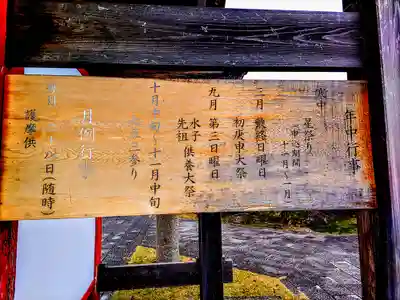 年中行事
寒中 星祭り
(申込期間
十一月〜一月)
三月 最終日曜日
初庚申大祭
九月 第三日曜日
水子
先祖 供養大祭
十月中旬〜十一月中旬
七五三参り
月例行事
毎月 二十八日(随時)
護摩供